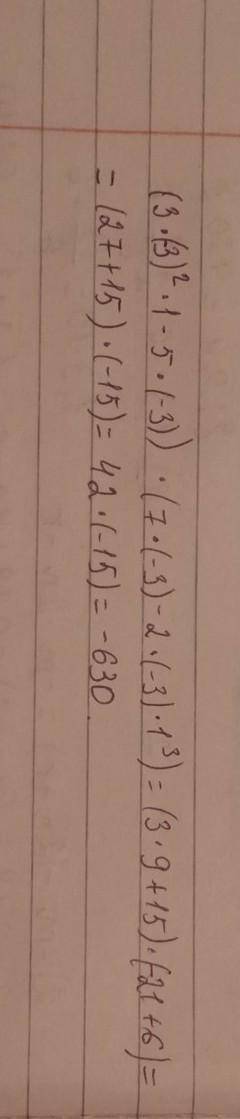 (3·(-3)²·1-5·(-3))·(7·(-3)-2·(-3)·1³)=(3·9+15)·(-21+6)=
=(27+15)·(-15)=42·(-15)=-630